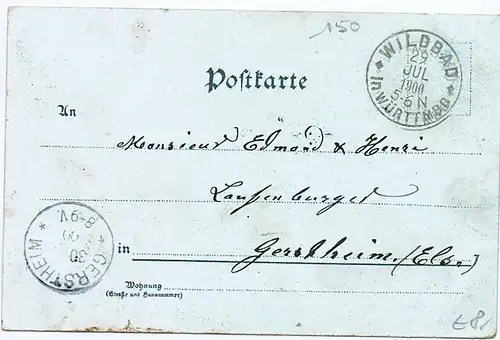 150
WILDBAD
29
JUL
1900
5-6 N
in WÜRTTMBG
Postkarte
An
Monsieur Edmond & Henri
Laufenburger
in Gerstheim. (Els.)
GERSTHEIM
30
00
8-9V.
Wohnung
(Straße und Hausnummer)
€8,-